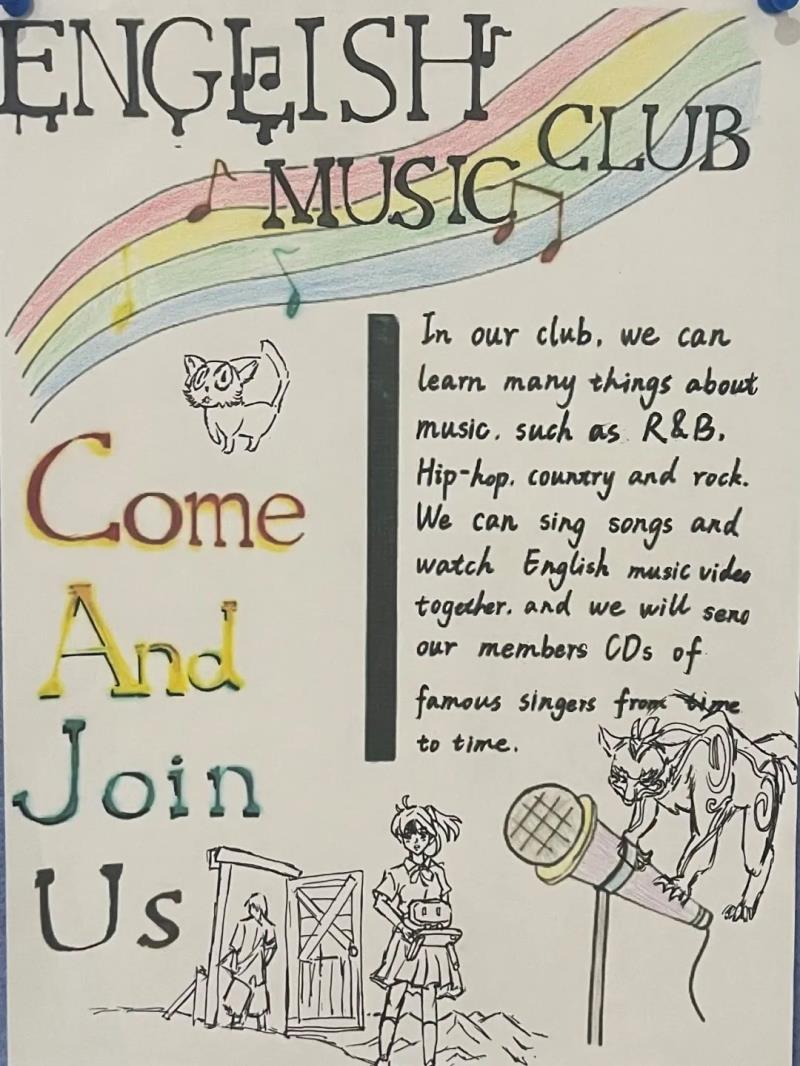 ENGLISH
MUSIC CLUB
Come
And
Join
Us
In our club, we can
learn many things about
music, such as R&B,
Hip-hop, country and rock.
We can sing songs and
watch English music video
together, and we will send
our members CDs of
famous singers from time
to time.